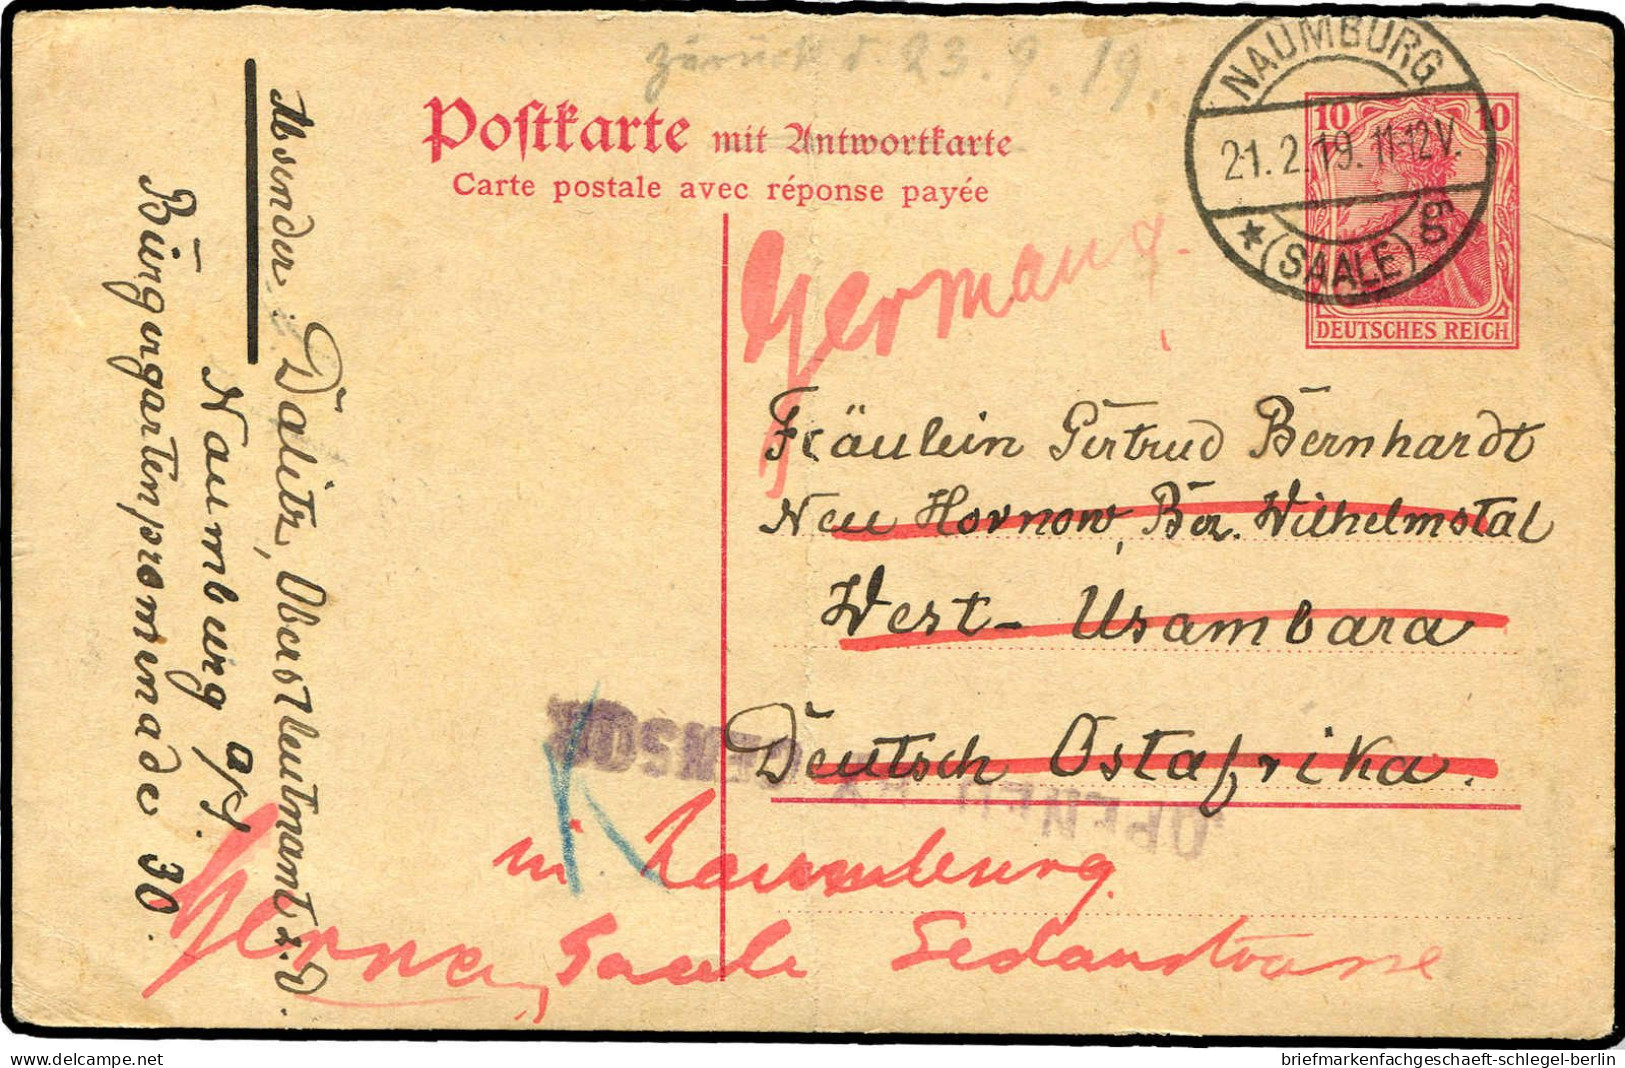 zurück d. 23.9.19.
Postkarte mit Antwortkarte
Carte postale avec réponse payée
NAUMBURG
21.2.19. 11-12V.
* (SAALE) gg
10 10
DEUTSCHES REICH
Germany.
Fräulein Gertrud Bernhardt
Neu Hornow, Bez. Wilhelmstal
West-Usambara
Deutsch Ostafrika.
OPENED BY
CENSOR
in Naumburg
Saale Sedanstrasse
Absender: Dalitz, Oberstleutnant z. D.
Naumburg a/S.
Bürgergartenpromenade 30.
briefmarkenfachgeschaeft-schlegel-berlin
©delcampe.net